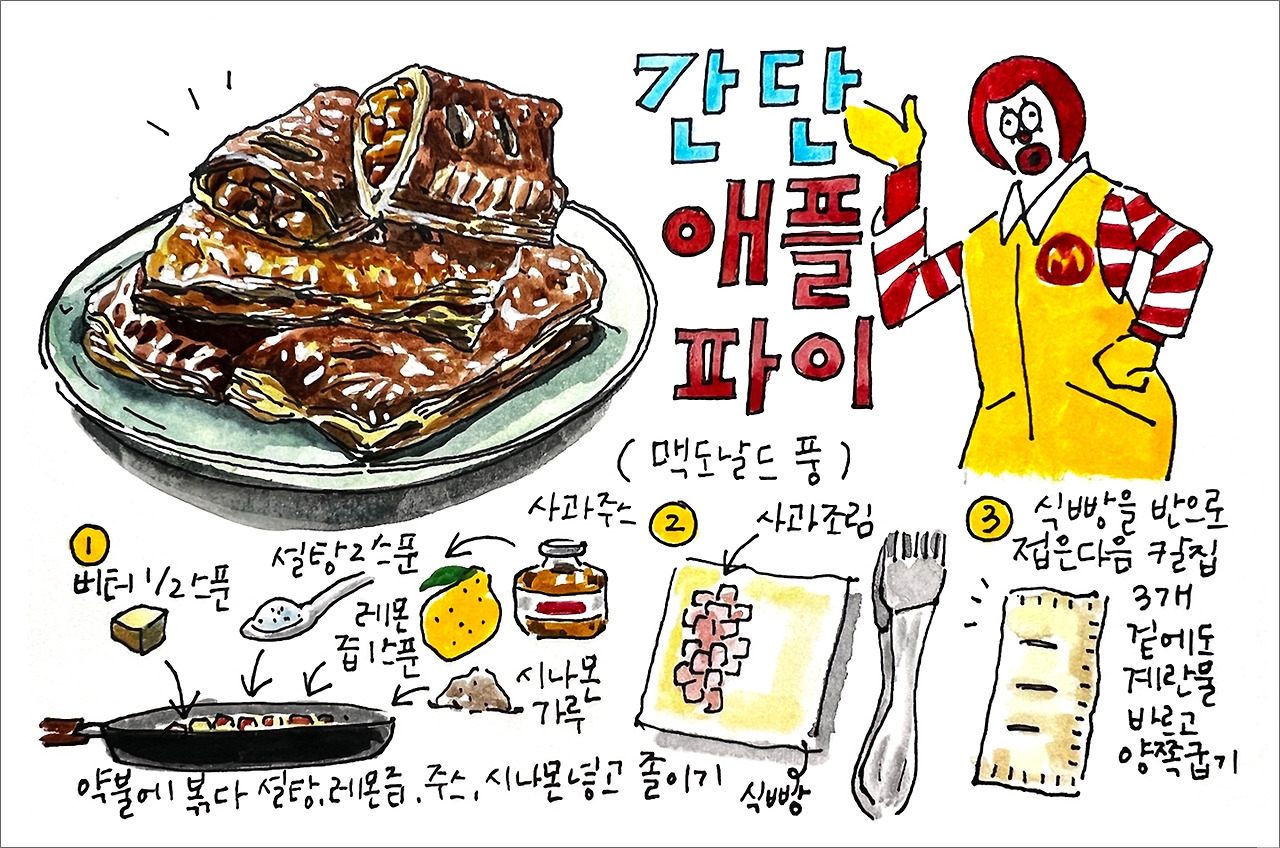 간단
애플
파이
(맥도날드 풍)
M
1
버터 1/2스푼
설탕 2스푼
사과주스
레몬
즙 1스푼
시나몬
가루
약불에 볶다 설탕, 레몬즙, 주스, 시나몬 넣고 졸이기
2
사과조림
식빵
3
식빵을 반으로
접은다음 칼집
3개
겉에도
계란물
바르고
양쪽굽기